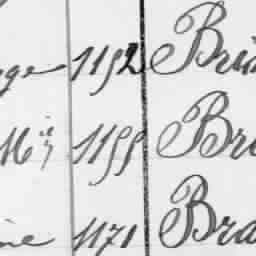 ge 1152 Bri
Mis 1155 Bre
ine 1171 Bra